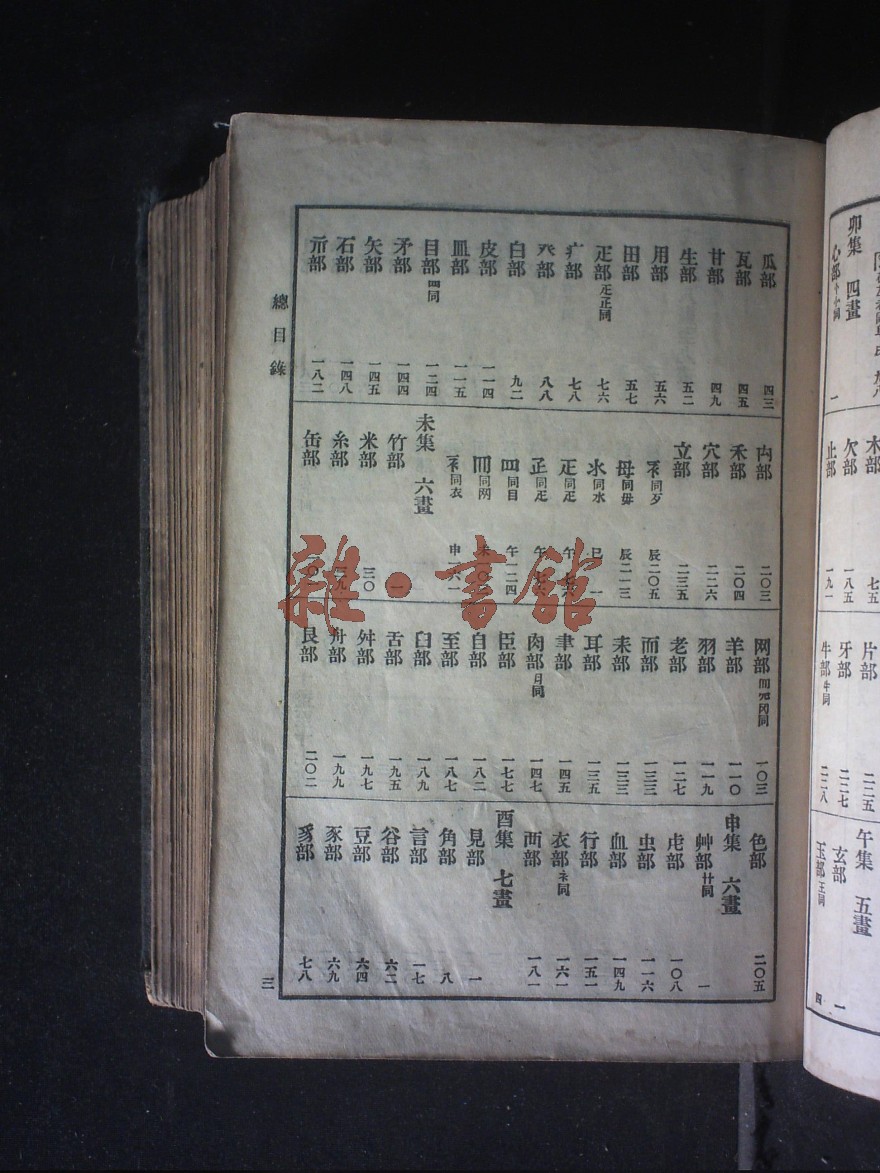 總目錄
瓜部 四三
瓦部 四五
甘部 四九
生部 五二
用部 五六
田部 五七
疋部 𤴔正同 七六
疒部 七八
癶部 八八
白部 九二
皮部 一一四
皿部 一一五
目部 罒同 一二四
矛部 一四四
矢部 一四五
石部 一四八
示部 一八二
禸部 二〇三
禾部 二〇四
穴部 二二六
立部 二三五
同歹 辰二〇五
母同毋 辰二一三
氺同水 巳一
同疋 午七六
同疋 午七六
罒同目 午一二四
同网
同衣 申一六一
未集 六畫
竹部 一
米部 三〇
糸部
缶部
网部 一〇三
羊部 一一〇
羽部 一一九
老部 一二七
而部 一三三
耒部 一三三
耳部 一三五
聿部 一四五
肉部 月同 一四七
臣部 一七七
自部 一八二
至部 一八七
臼部 一八九
舌部 一九五
舛部 一九七
舟部 一九九
艮部 二〇二
色部 二〇五
申集 六畫
艸部 艹同 一
虍部 一〇八
虫部 一一六
血部 一四九
行部 一五一
衣部 衤同 一六一
襾部 一八一
酉集 七畫
見部 一
角部 八
言部 一七
谷部 六二
豆部 六四
豕部 六九
豸部 七八
三
卯集 四畫
心部 一
木部 七五
欠部 一八五
止部 一九一
片部 二二五
牙部 二二七
牛部 牜同 二二八
午集 五畫
一
玄部
玉部 王同
四
雜·書館